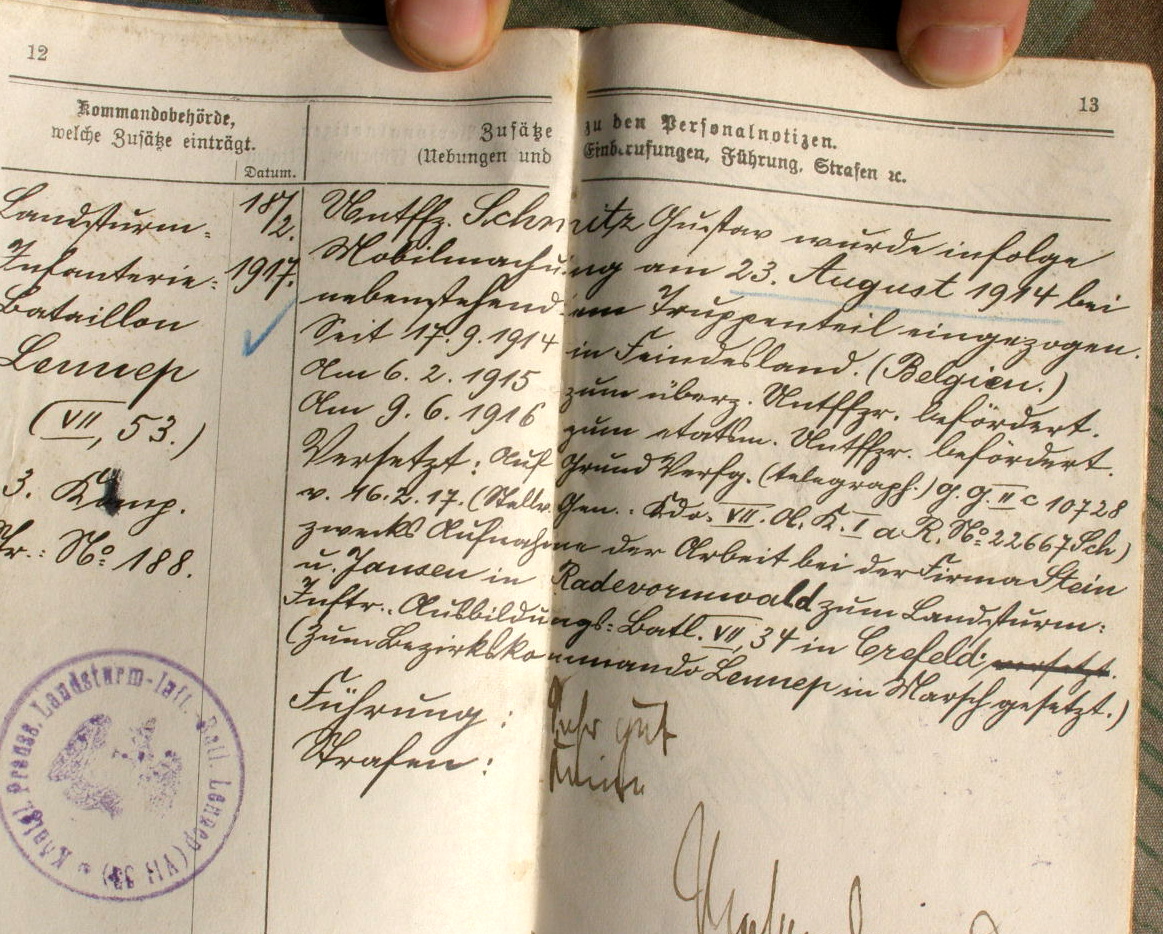 12
13
Kommandobehörde,
welche Zusätze einträgt.
Datum.
Zusätze zu den Personalnotizen.
(Uebungen und Einberufungen, Führung, Strafen ꝛc.
Landsturm-
Infanterie-
Bataillon
Lennep
(VII, 53.)
3. Komp.
Nr.: No 188.
18/2.
1917.
Untffz. Schmitz Gustav wurde infolge
Mobilmachung am 23. August 1914 bei
nebenstehendem Truppenteil eingezogen.
Seit 17.9.1914 in Feindesland. (Belgien.)
Am 6.2.1915 zum überz. Untffzr. befördert.
Am 9.6.1916 zum etatsm. Untffzr. befördert.
Versetzt: Auf Grund Verfg. (telegraph.) G.G. II c 10728
v. 16.2.17. (Stellv. Gen.. Kdo. VII. A.K. I a R. No 22667 Sch)
zwecks Aufnahme der Arbeit bei der Firma Stein
u. Jansen in Radevormwald zum Landsturm-
Inftr.. Ausbildungs-Batl. VII, 34 in Crefeld versetzt.
(Zum Bezirkskommando Lennep in Marsch gesetzt.)
Führung: Sehr gut
Strafen: Keine
Königl. Preuss. Landsturm-Inft.-Batl. Lennep (VII 53)